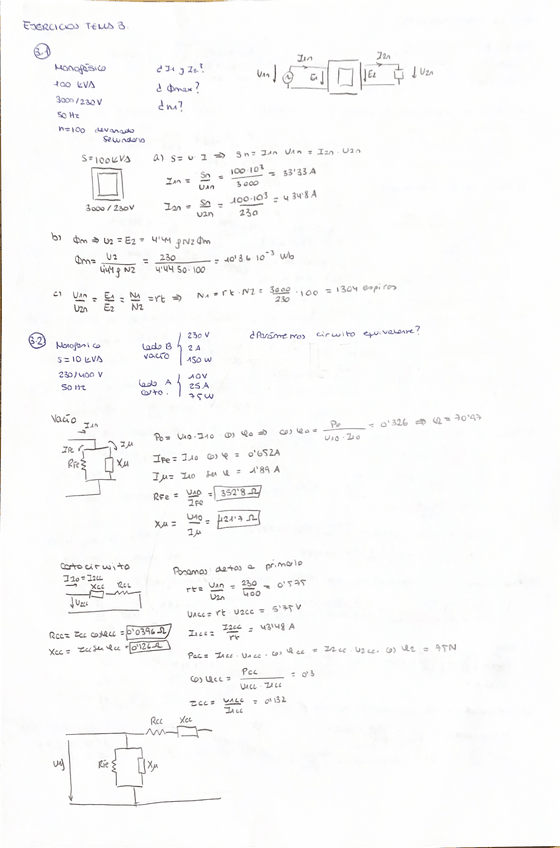 EJERCICIOS TEMA 3.
3.1
Monofásico
100 kVA
3000/230V
50 Hz
n=100 devanado
secundario
¿I1n y I2n?
¿Φmax?
¿n1?
I1n I2n
U1n E1 E2 U2n
S=100kVA
3000/230V
a) S= U I ⇒ Sn = I1n U1n = I2n · U2n
I1n = Sn/U1n = 100·10³/3000 = 33'33 A
I2n = Sn/U2n = 100·10³/230 = 434'8 A
b) Φm ⇒ U2 = E2 = 4'44 f N2 Φm
Φm = U2/4'44 f N2 = 230/4'44 50·100 = 10'36·10⁻³ Wb
c) U1n/U2n = E1/E2 = N1/N2 = rt ⇒ N1 = rt · N2 = 3000/230 · 100 = 1304 espiras
3.2
Monofásico
S=10 kVA
230/400 V
50 Hz
lado B vacío { 230V
2A
150W
lado A corto. { 10V
25A
75W
¿Parámetros circuito equivalente?
Vacío
I10
IFe Iμ
RFe Xμ
P0 = U10 · I10 cos φ0 ⇒ cos φ0 = P0/U10 · I10 = 0'326 ⇒ φ = 70'97
IFe = I10 cos φ = 0'652A
Iμ = I10 sen φ = 1'89 A
RFe = U10/IFe = 352'8 Ω
Xμ = U10/Iμ = 121'7 Ω
Cortocircuito
Xcc Rcc
U2cc
Rcc = Zcc cosφcc = 0'0396 Ω
Xcc = Zcc sen φcc = 0'126 Ω
Pasamos datos a primario
rt = U1n/U2n = 230/400 = 0'575
U1cc = rt · U2cc = 5'75 V
I1cc = I2cc/rt = 43'48 A
Pcc = I1cc · U1cc · cos φcc = I2cc · U2cc · cos φcc = 75W
cos φcc = Pcc/U1cc · I1cc = 0'3
Zcc = U1cc/I1cc = 0'132
Rcc Xcc
RFe Xμ